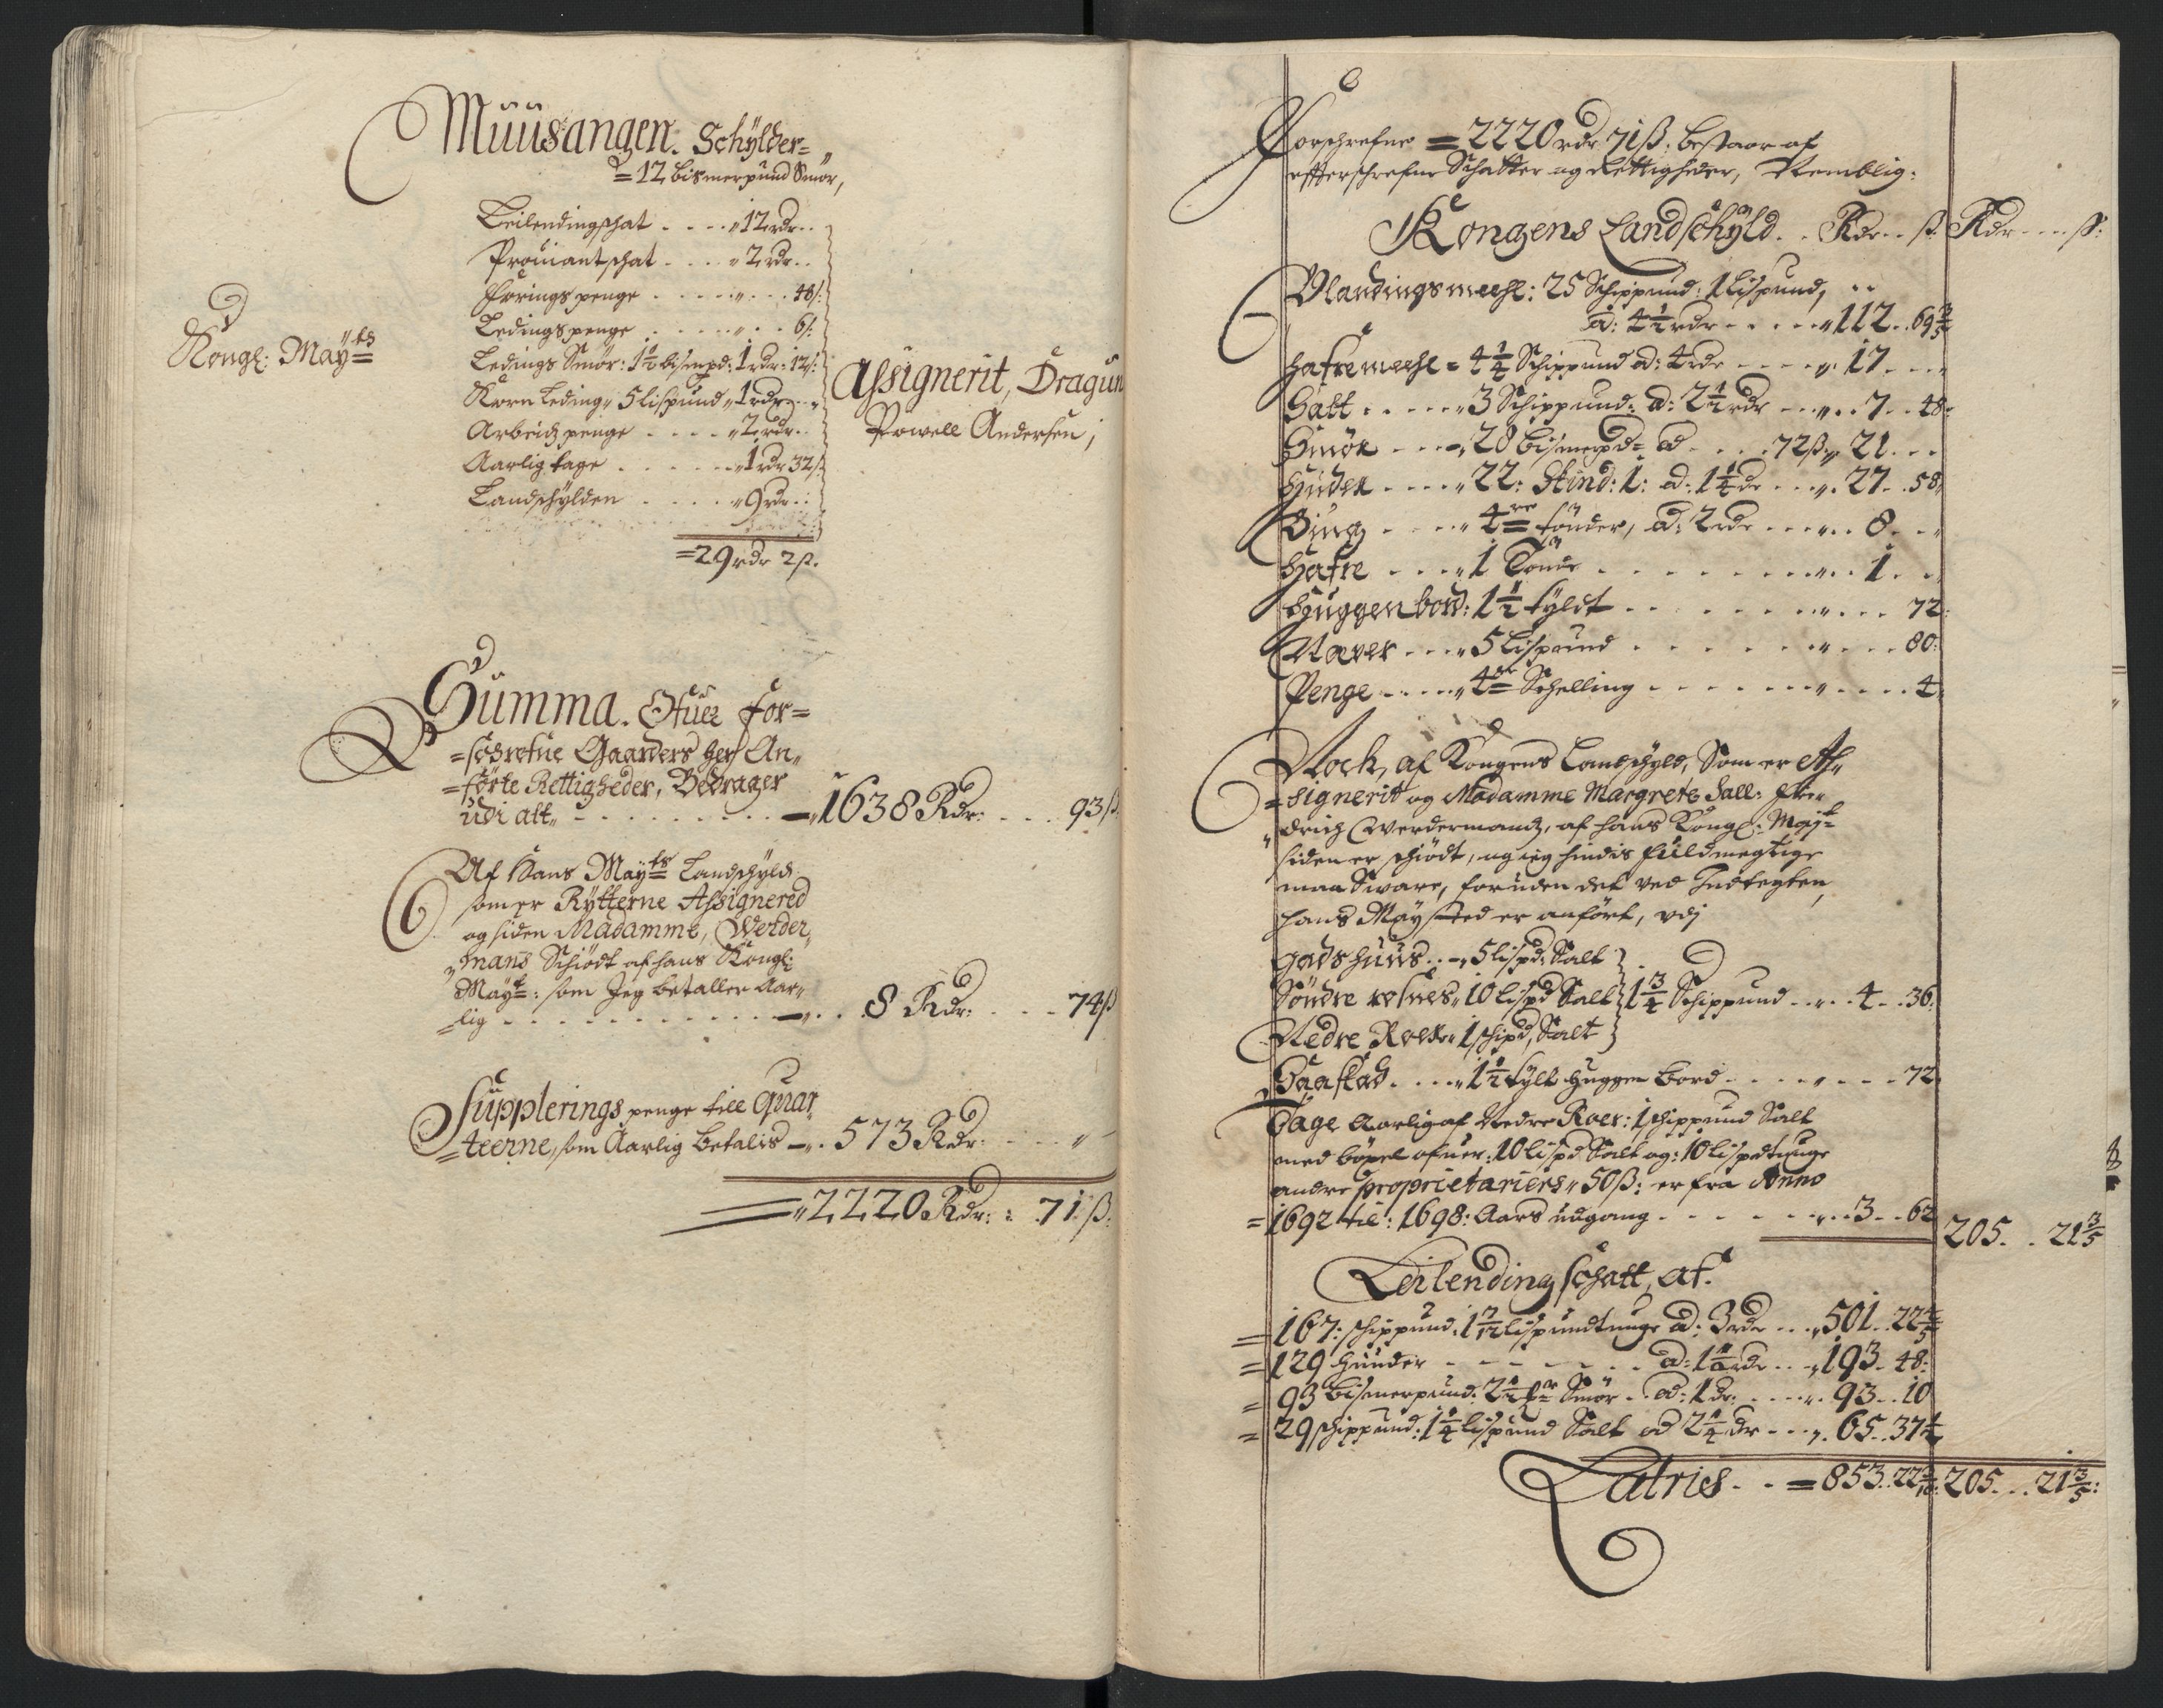 Müüsangen. Schÿlder=
=12 bismerpund Smör,
Leilendingschat . . . . 12 rdr . .
Prouiantschat . . . . 2 rdr . .
Foringspenge . . . . . . 48 ß:
Ledingspenge . . . . . . 6 ß:
Ledings Smör: 1½ bismpd: 1 rdr: 12 ß:
Korn Leding 5 lispund 1 rdr . .
Arbeidzpenge . . . . 2 rdr . .
Aarlig tage . . . . . . 1 rdr 32 ß
Landschÿlden . . . . . 9 rdr . .
=29 rdr 2 ß.
Kongl: Maÿ:ts
Assignerit, Dragun
Powell Andersen;
Summa. Ofuer for=
=schrefne Gaarders her An,,
=förte Rettigheder, Bedrager
udi alt,, . . . . . . . . 1638 Rdr: . . . 93 ß:
Af Hans Maÿ:ts Landschÿld
som er Rÿtterne Assignered
og siden Madamme, Werder,,
,,mans Schiödt af hans Kongl:
Maÿ:t: som Jeg betaller Aar,,
=lig . . . . . . . . . . . . 8 Rdr: . . . 74 ß
Supplerings penge till Quar,,
=teerne, som Aarlig betalis . . 573 Rdr: . . . ,,
2220 Rdr: : 71 ß:
Forschrefne =2220 rdr 71 ß: bestaar af
effterschrefne Schatter og Rettigheder, Nemblig:
Kongens Landschÿld. . Rdr . . ß. Rdr . . . . ß:
Blandingsmeehl: 25 Schippund: 1 Lispund, . .
ad: 4½ rdr . . . . . 112 . . 69 3/5
Hafremeehl = 4¼ Schippund ad: 4 rdr . . . . 17 . . .
Salt . . . . . 3 Schippund: ad: 2½ rdr . . . . 7 . . 48:
Smör . . . 28 bismerpd: ad . . . 72 ß: 21 . . .
Huder . . . . 22: Skind: 1: ad: 1¼ dr . . . 27 . . 58,
Biug . . . . 4re tönder, ad: 2 rdr . . . . 8 . . .
Hafre . . . . 1 Tönde . . . . . . . . . . 1 . . .
Huggenbord: 1½ tÿldt . . . . . . . . . . . 72:
Næver . . . 5 Lispund . . . . . . . . . . 80:
Penge . . . . 4re Schelling . . . . . . . . . . 4,
Nock, af Kongens Landschÿld, Som er As,,
=signerit og Madamme Margrete Sall: Hen,,
,,drich Werdermandz, af hans Kongl: Maÿ:t
siden er schiödt, og ieg hindis fuldmegtige
maa Sware, foruden det ved Indtegten
hans Maÿsted er anfört, vdj
Gadshuus . . 5 lispd: Salt
Söndre refnes 10 lispd Salt 1¾ Schippund . . . 4 . . 36:
Nedre Roer 1 schipd, Salt
Haastad . . . . 1½ tÿlt Huggen bord . . . . . . . 72
Tage Aarlig af Nedre Roer: 1 schippund Salt
med böxel ofuer: 10 lispd Salt og: 10 lispd tunge
andre proprietariers 50 ß: er fra Anno
=1692 til: 1698: Aars udgang . . . . . . . 3 . . 62
205 . . 21 3/5
Leilendingschatt, af.
=167: schippund: 1 7/12 lispundtunge ad: 3 rdr . . . 501 . . 22 4/5
=129 Huuder . . . . . . . ad: 1½ rdr . . 193 . 48:
=93 bismerpund: 2½ mr Smör . . ad: 1 dr: . . . . 93 . . 10
=29 schippund: 1¼ lispund Salt ad 2¼ dr . . . 65 . . 37½
Latries . . =853 . . 22 205 . . . 21 3/5: